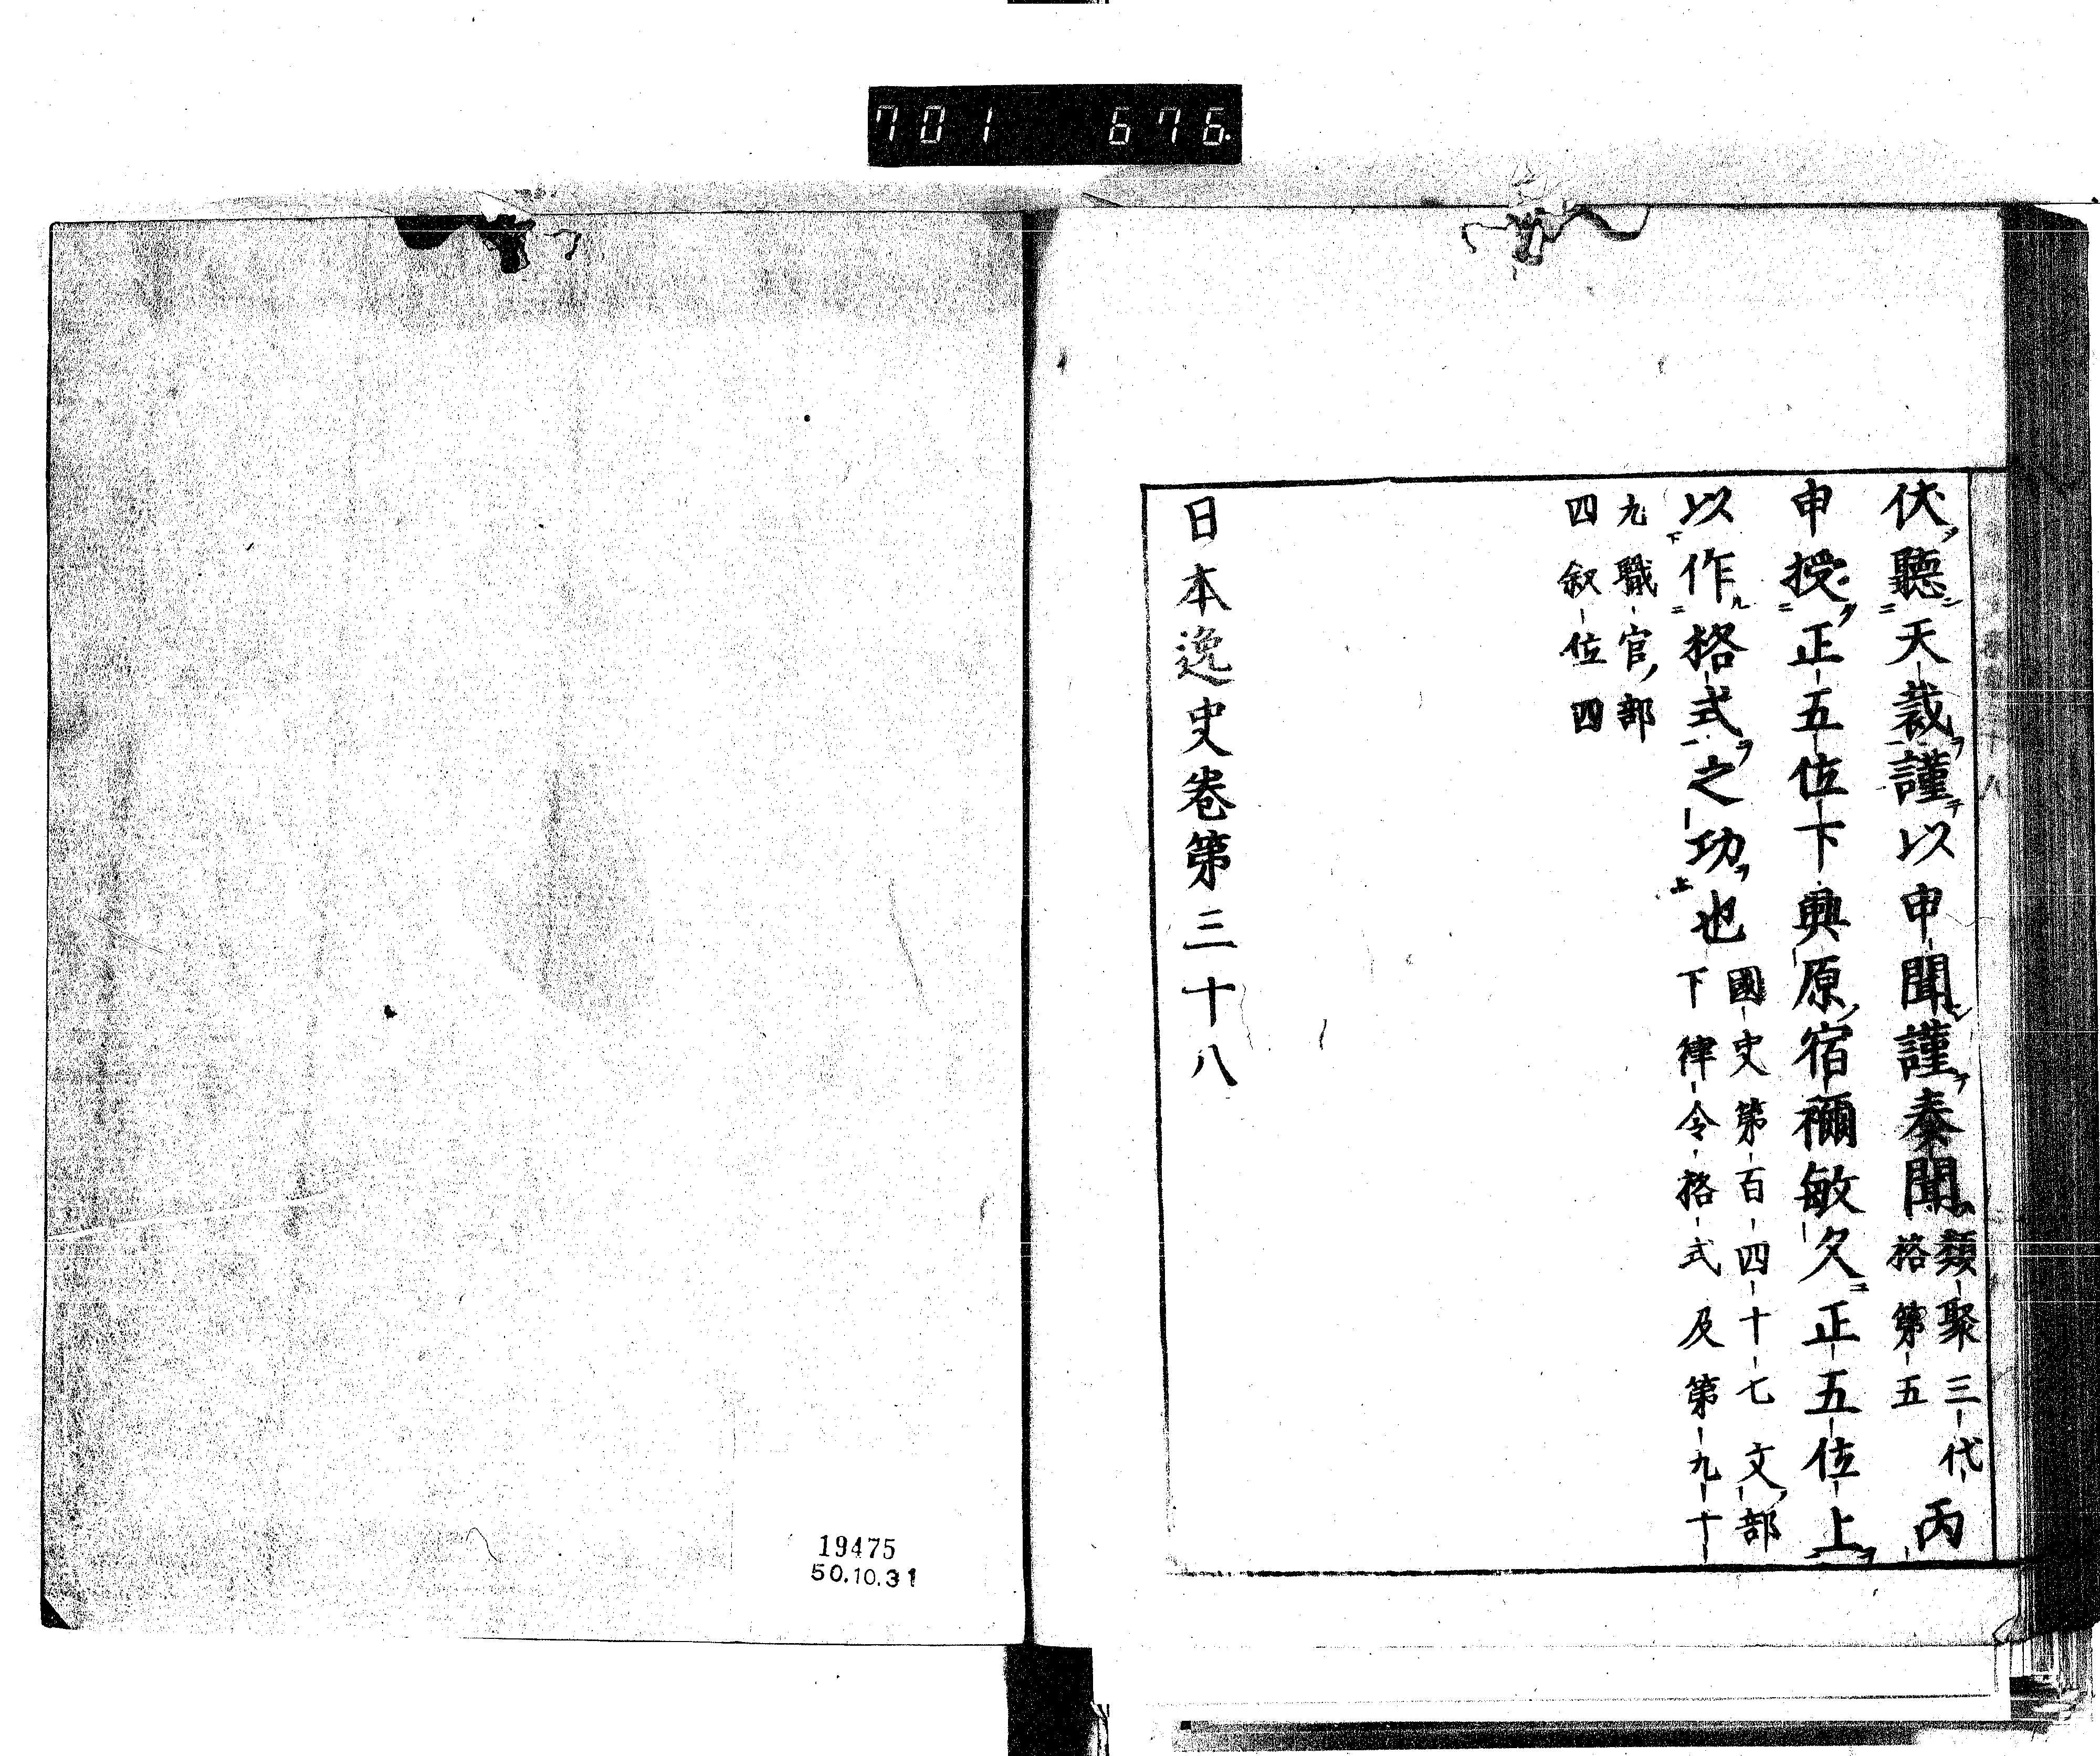 701 676.
伏聽天裁謹以申聞謹奏聞 類聚三代格第五 丙
申授正五位下興原宿禰敏久正五位上
以作格式之功也 國史第百四十七文部
下律令格式及第九十
九職官部
四叙位四
日本逸史卷第三十八
19475
50.10.31